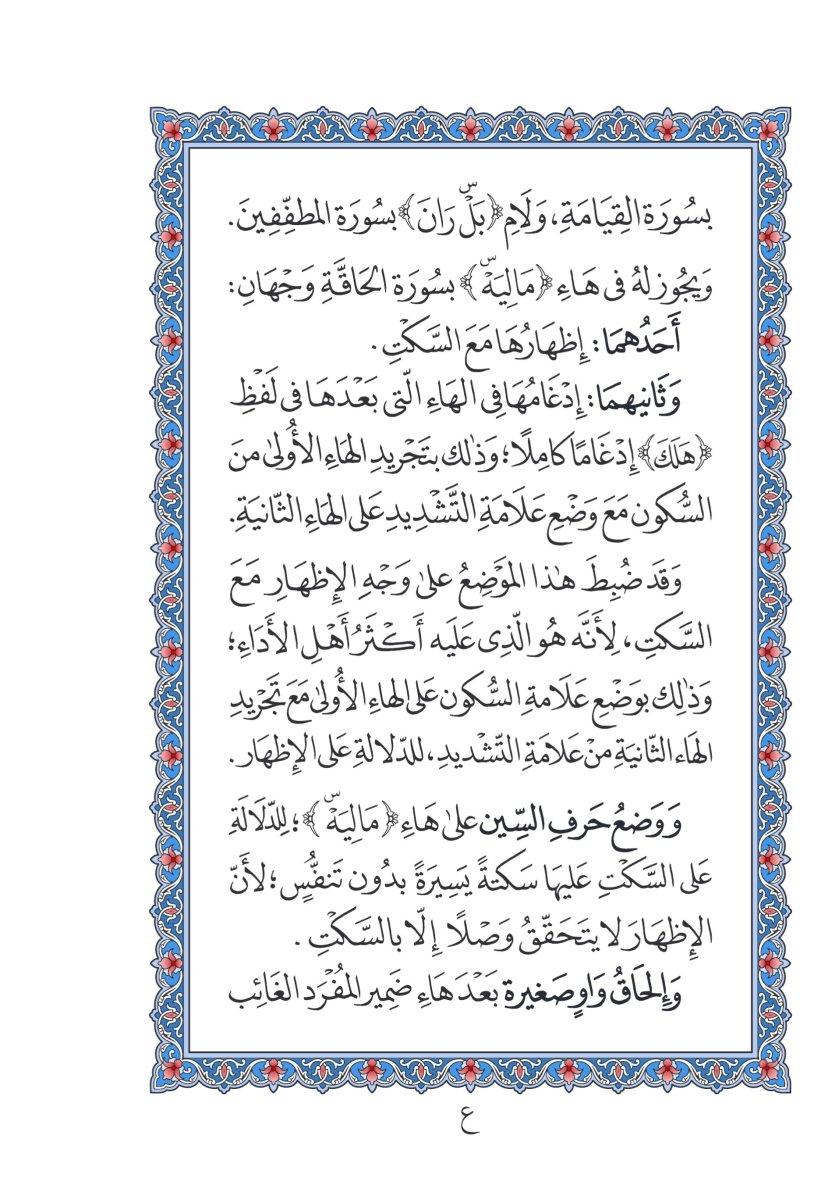 بسُورَة القِيَامَةِ، وَلَامِ ﴿بَلۜۡ رَانَ﴾ بسُورَة المطفِّفِينَ.
وَيجُوز لهُ فى هَاءِ ﴿مَالِيَهۡۜ﴾ بسُورَة الحَاقَّةِ وَجْهَانِ:
أَحَدُهمَا: إِظهَارُهَا مَعَ السَّكتِ.
وَثَانِيهمَا: إِدْغَامُهَا فِى الهَاءِ الّتى بَعْدَهَا فى لَفْظِ
﴿هَلَكَ﴾ إِدْغَامًا كامِلًا؛ وَذٰلك بتَجْريدِ الهَاءِ الأُولىٰ منَ
السُّكون مَعَ وَضْعِ عَلَامَةِ التَّشْدِيدِ عَلى الهَاءِ الثّانيَةِ.
وَقَد ضُبِطَ هٰذا الموْضِعُ علىٰ وَجْهِ الإِظهَارِ مَعَ
السَّكتِ، لِأَنَّه هُو الّذِى عَلَيه أَكثَرُ أَهْلِ الأَدَاءِ؛
وَذٰلِك بوَضْعِ عَلَامةِ السُّكون عَلى الهاءِ الأُولىٰ مَعَ تَجْريدِ
الهَاء الثّانيَةِ منْ عَلامَةِ التّشْديدِ، للدّلالةِ عَلى الإِظهَار.
وَوَضعُ حَرفِ السِّين علىٰ هَاءِ ﴿مَالِيَهۡۜ﴾؛ لِلدّلَالَةِ
عَلى السَّكْتِ عَليهَا سَكتةً يَسِيَرةً بدُون تَنفُّسٍ؛ لأَنّ
الإِظهَارَ لا يتَحَقّقُ وَصْلًا إِلّا بالسَّكْتِ.
وَإِلحَاقُ وَاوٍ صَغيرة بَعْدَ هَاءِ ضَمِير المفْرَد الغَائِب
ع